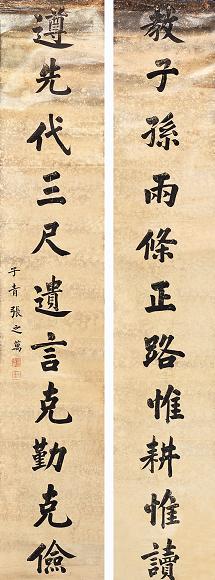 教子孫兩條正路惟耕惟讀
遵先代三尺遺言克勤克儉
子青張之萬